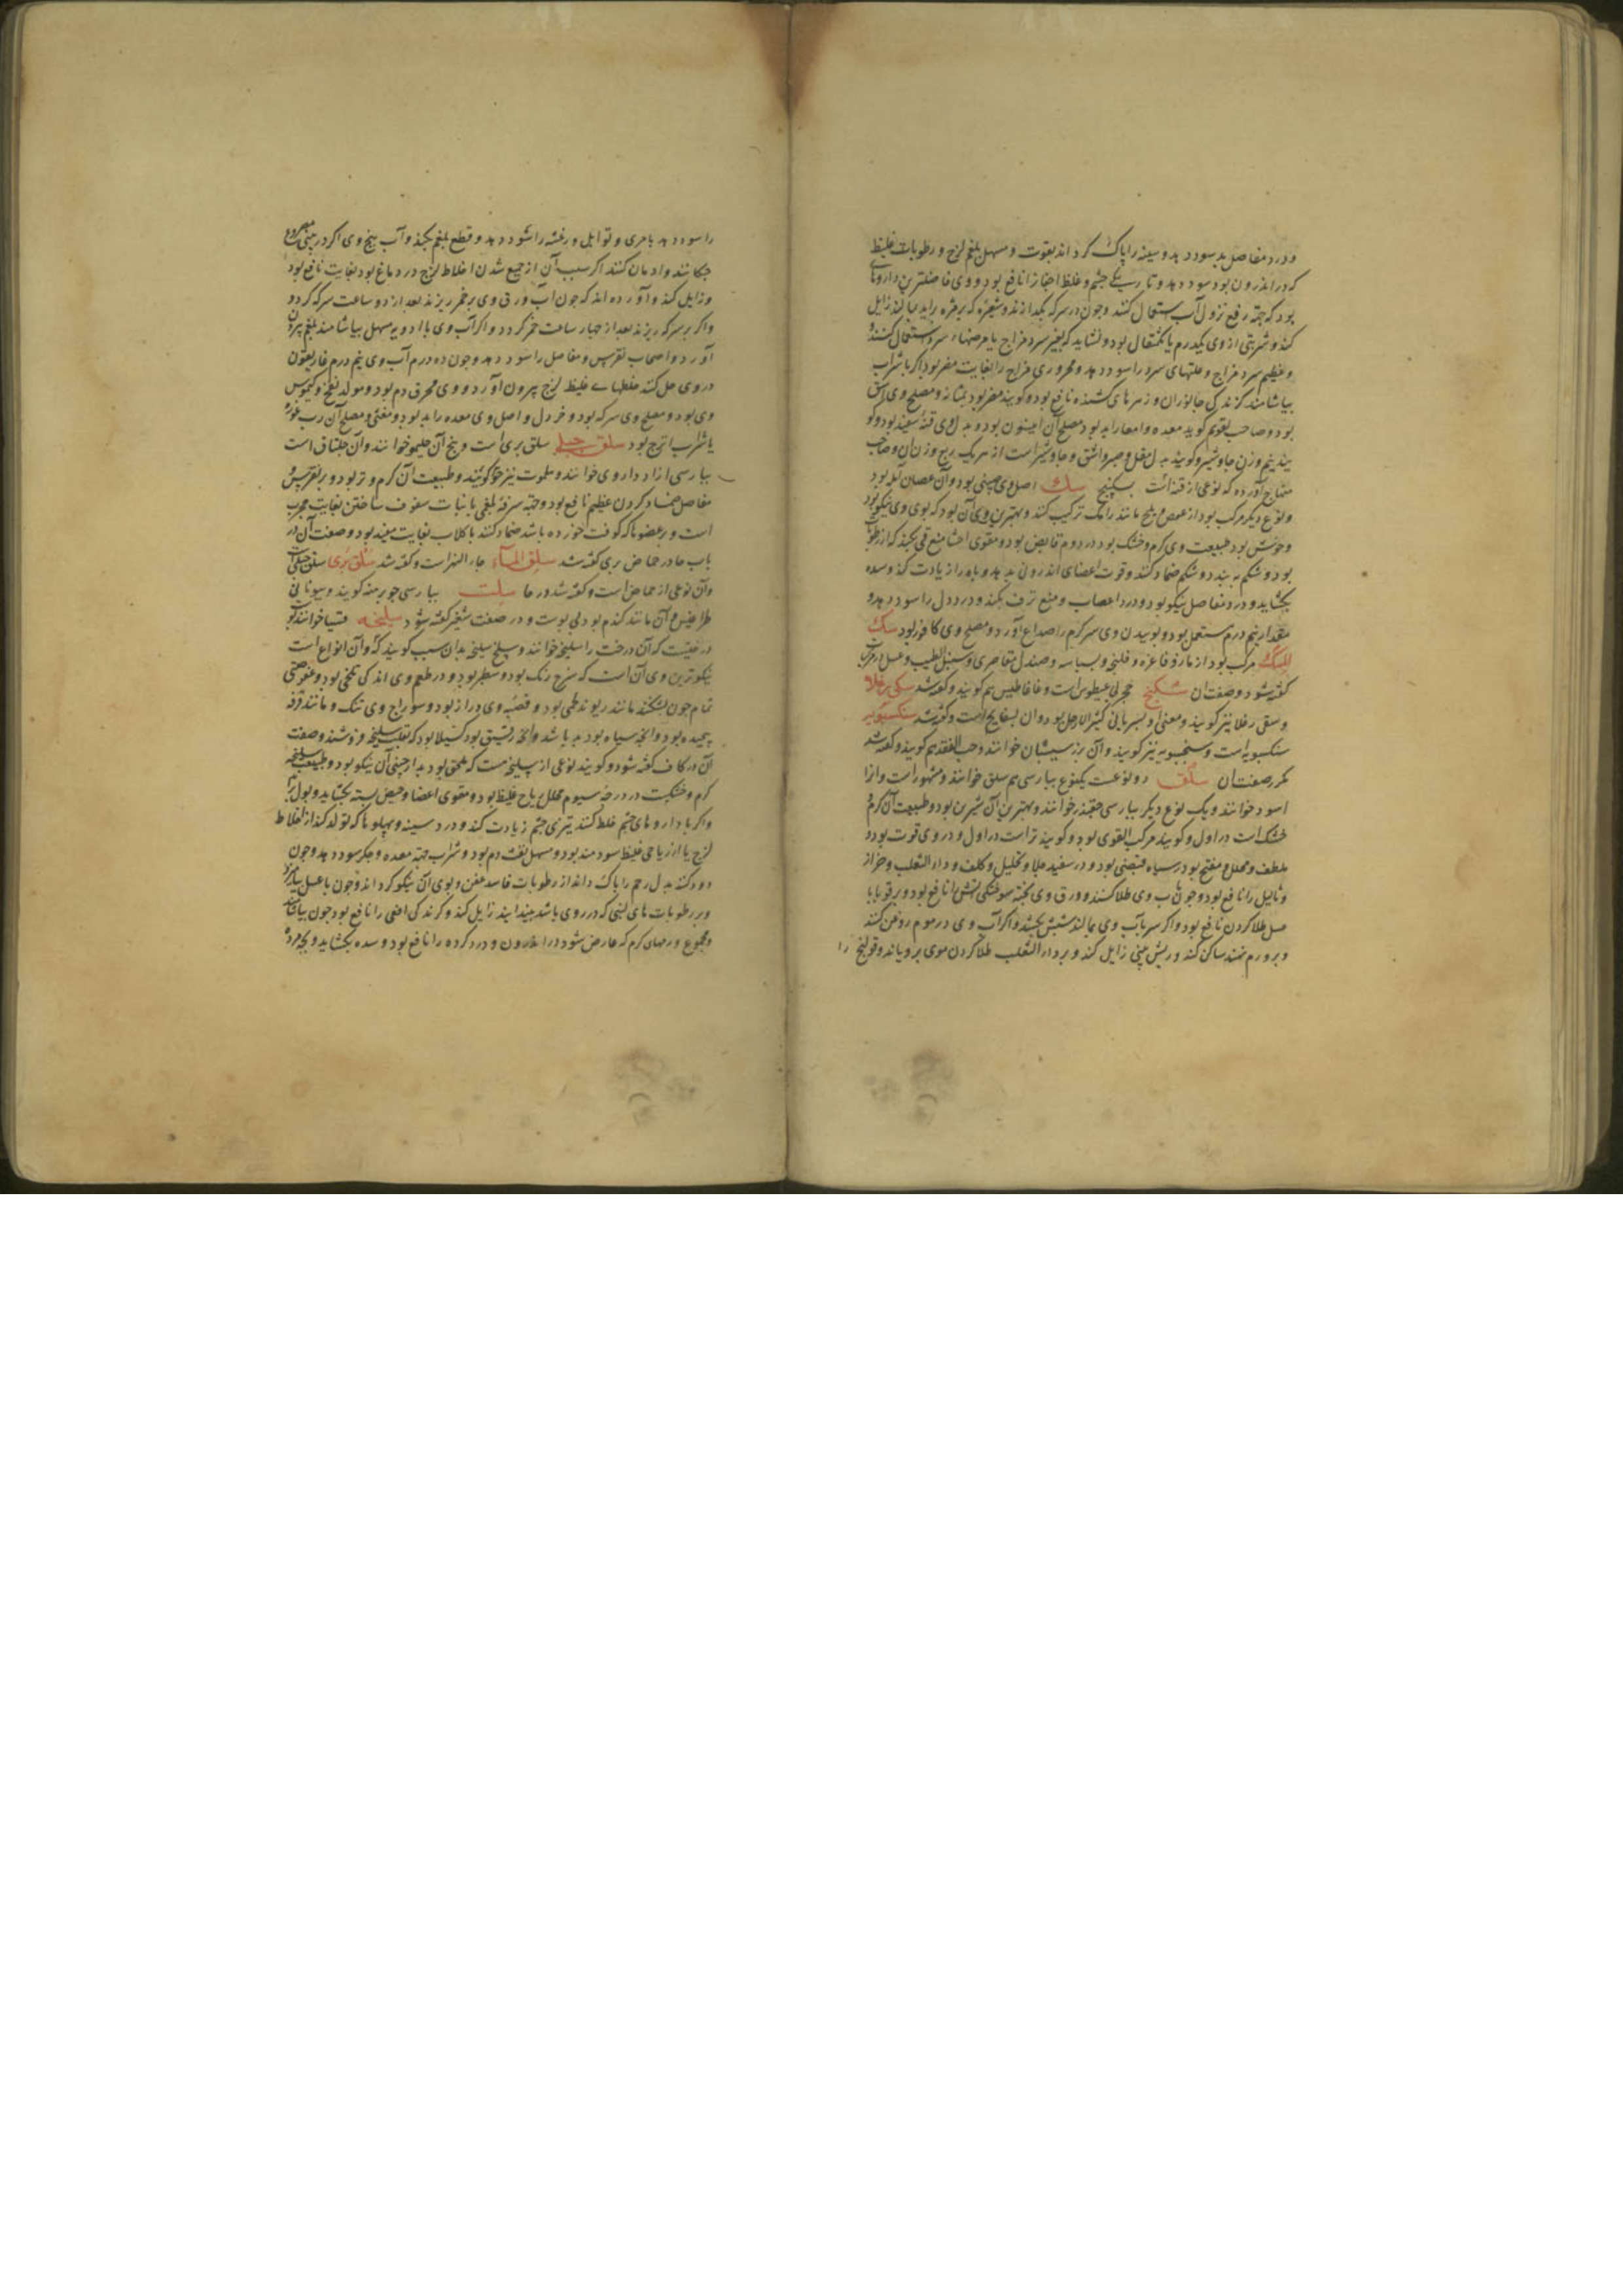 و درد مفاصل بد سود دهد و سینه را پاک کرداند بقوت و مسهل بلغم لزج و رطوبات غلیظ
که در اندرون بود سود دهد و تاریکی چشم و غلظ اجفان را نافع بود و وی فاضلترین داروهای
بود که جهة رفع نزول آب استعمال کنند و چون در سرکه بکدازند و شعیره که بر مژه زاید بمالند زایل
کند و شربتی از وی یکدرم یا یکمثقال بود و نشاید که بغیر سرد مزاج یا مرضهاء سرد استعمال کنند و
و عظیم سرد مزاج و علتهای سرد را سود دهد و محروری مزاج را بغایت مضر بود اکر با شراب
بیاشامند کزندکی جانوران و زهرهای کشنده نافع بود و کویند مضر بود بمثانه و مصلح وی اشق
بود و صاحب تقویم کوید معده و امعا را بد بود مصلح آن انیسون بود و بدل وی قنه سفید بود و کو
یند نیم وزن جاوشیر و کویند بدل مقل و صبر و اشق و جاوشیر است از هر یک ربع وزن آن و صاحب
منهاج آورده که نوعی از قنه است سکبینج سک اصل وی چینی بود و آن عصاره آمله بود
و نوع دیکر مرکب بود از عفص و بلح مانند رامک ترکیب کنند و بهترین وی آن بود که بوی وی نیکو بود
و خوش بود طبیعت وی کرم و خشک بود در دوم قابض بود و مقوی احشا منع قی بکند که از رطوبت
بود و شکم ببندد و شکم ضماد کنند و قوت اعضای اندرونی بدهد و باه را زیادت کند و سده
بکشاید و درد مفاصل نیکو بود و درد اعصاب و منع نزف بکند و درد دل را سود دهد و
مقدار نیم درم مستعمل بود و بوییدن وی سر کرم را صداع آورد و مصلح وی کافور بود سک
المسک مرکب بود از مازو و فاغره و فلنجه و بسباسه و صندل مقاصری و سنبل الطیب و عسل در مرکبات
کفته شود و صفت آن شکنج حجر لی غیطوس است و غافاطیس هم کویند و کفته شد سکی رغلا
و سقی رغلا نیز کویند و معنی او بسریانی کثیر الارجل بود و آن بسفایج است و کفته شد سنکسبویه
سنکسبویه است و سنجسبویه نیز کویند و آن بزر سیسبان خوانند و حب الفقد هم کویند و کفته شد
مکرر صفت آن سلق دو نوعست یکنوع بپارسی هم سلق خوانند و مشهور است و آنرا
اسود خوانند و یک نوع دیکر بپارسی چقندر خوانند و بهترین آن شیرین بود و طبیعت آن کرم و
خشک است در اول و کویند مرکب القوی بود و کویند تر است در اول و در وی قوت بود و
ملطف و محلل و مفتح بود در سیاه قبضی بود و در سفید جلا و تحلیل و کلف و داء الثعلب و حزاز
و ثآلیل را نافع بود و چون بآب وی طلا کنند و ورق وی پخته سوختکی آتش را نافع بود و بر قوبا با
عسل طلا کردن نافع بود و اکر سر بآب وی بمالند شپش بکشد و اکر آب وی در موم روغن کنند
و بر ورم نهند ساکن کند و ریش بینی زایل کند و بر داء الثعلب طلا کردن موی برویاند و قولنج را
را سود دهد با مری و توابل و رعشه را سود دهد و قطع بلغم بکند و آب بیخ وی اکر در بینی
چکانند و ادمان کنند اکر سبب آن از جمع شدن اخلاط لزج در دماغ بود بغایت نافع بود
و زایل کند و آورده اند که چون آب ورق وی بر خمر ریزند بعد از دو ساعت سرکه کردد
و اکر بر سرکه ریزند بعد از چهار ساعت خمر کردد و اکر آب وی با ادویه مسهل بیاشامند بلغم بیرون
آورد و اصحاب نقرس و مفاصل را سود دهد و چون ده درم آب وی نیم درم غاریقون
در وی حل کنند خلطهای غلیظ لزج بیرون آورد و وی محرق دم بود و مولد نفخ و کیموس
وی بود و مصلح وی سرکه بود و خردل و اصل وی معده را بد بود و مغثی و مصلح آن رب غوره
یا شراب اترج بود سلق جبلی سلق بری است و بیخ آن حلیمو خوانند و آن جلناق است
بپارسی ازاد داروی خوانند و ملوت نیز خو کویند و طبیعت آن کرم و تر بود و بر نقرس و
مفاصل ضماد کردن عظیم نافع بود و جهة سرفه بلغمی با نبات سفوف ساختن بغایت مجرب
است و بر عضوها که کوفت خورده باشد ضماد کنند با کلاب بغایت مفید بود و صفت آن در
باب حا در حماض بری کفته شد سلق الماء جار النهر است و کفته شد سلق بری سلق جبلی است
و آن نوعی از حماض است و کفته شد در حا سلت بپارسی جو برهنه کویند و بیونانی
طراغیس و آن مانند کندم بود بی پوست و در صفت شعیر کفته شود سلیخه قسیا خوانند و
درختیست که آن درخت را سلیخه خوانند و سلخ سلیخه بدان سبب کویند که و آن انواع است
نیکوترین وی آن است که سرخ رنک بود و سطبر بود و در طعم وی اندکی تلخی بود و عفوصتی
تمام چون بشکنند مانند ریوند طبی بود و قصبه وی دراز بود و سوراخ وی تنک و مانند قرفه
پیچیده بود و آنچه سیاه بود بد باشد و آنچه رقیق بود کسیلا بود که بقلب سلیخه فروشند و صفت
آن در کاف کفته شود و کویند نوعی از سلیخه هست که ملحق بود بدارچینی آن نیکو بود و طبیعت سلیخه
کرم و خشکست در درجه سیوم محلل ریاح غلیظ بود و مقوی اعضا و حیض بسته بکشاید و بول را
و اکر با داروهای چشم خلط کنند تیزی چشم زیادت کند و درد سینه و پهلوها که تولد کند از اخلاط
لزج یا از ریاحی غلیظ سودمند بود و مسهل نفث دم بود و شراب جهة معده و جکر سود دهد و چون
دود کنند بدل رحم را پاک داند از رطوبات فاسد عفن و بوی آن نیکو کرداند و چون با عسل بیامیزد
و بر رطوبات های لبنی که در روی باشد بیندایند زایل کند و کزندکی افعی را نافع بود چون بیاشامند
و مجموع ورمهای کرم که عارض شود در اندرون و درد کرده را نافع بود و سده بکشاید و بچه مرده